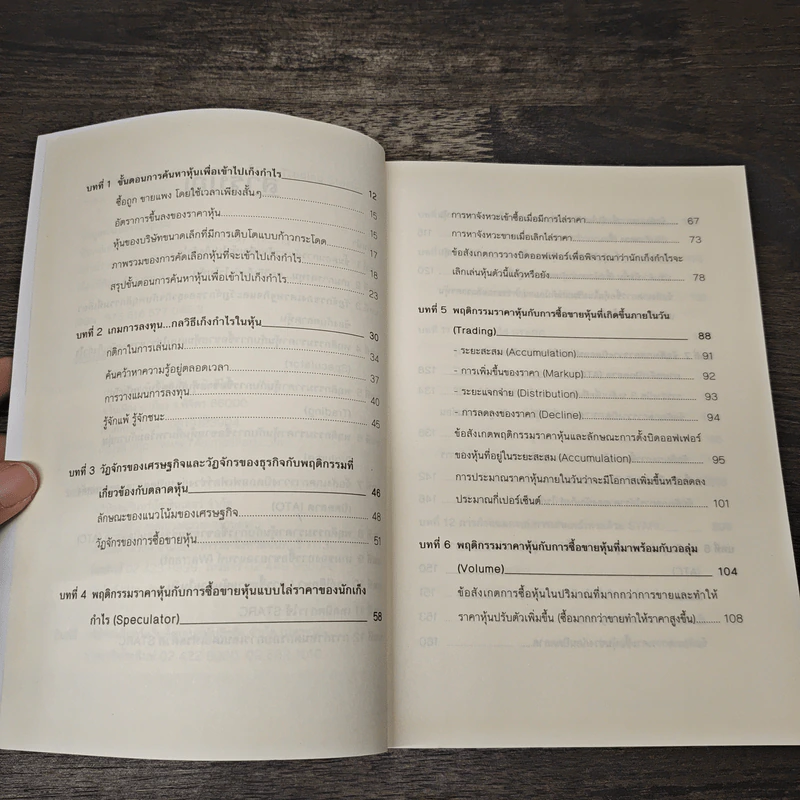 บทที่ 1 ขั้นตอนการค้นหาหุ้นเพื่อเข้าไปเก็งกำไร 12
ซื้อถูก ขายแพง โดยใช้เวลาเพียงสั้นๆ 15
อัตราการขึ้นลงของราคาหุ้น 15
หุ้นของบริษัทขนาดเล็กที่มีการเติบโตแบบก้าวกระโดด 17
ภาพรวมของการคัดเลือกหุ้นที่จะเข้าไปเก็งกำไร 18
สรุปขั้นตอนการค้นหาหุ้นเพื่อเข้าไปเก็งกำไร 23
บทที่ 2 เกมการลงทุน...กลวิธีเก็งกำไรในหุ้น 30
กติกาในการเล่นเกม 34
ค้นคว้าหาความรู้อยู่ตลอดเวลา 37
การวางแผนการลงทุน 40
รู้จักแพ้ รู้จักชนะ 45
บทที่ 3 วัฏจักรของเศรษฐกิจและวัฏจักรของธุรกิจกับพฤติกรรมที่
เกี่ยวข้องกับตลาดหุ้น 46
ลักษณะของแนวโน้มของเศรษฐกิจ 48
วัฏจักรของการซื้อขายหุ้น 51
บทที่ 4 พฤติกรรมราคาหุ้นกับการซื้อขายหุ้นแบบไล่ราคาของนักเก็ง
กำไร (Speculator) 58
การหาจังหวะเข้าซื้อเมื่อมีการไล่ราคา 67
การหาจังหวะขายเมื่อเลิกไล่ราคา 73
ข้อสังเกตการวางบิดออฟเฟอร์เพื่อพิจารณาว่านักเก็งกำไรจะ
เลิกเล่นหุ้นตัวนี้แล้วหรือยัง 78
บทที่ 5 พฤติกรรมราคาหุ้นกับการซื้อขายหุ้นที่เกิดขึ้นภายในวัน
(Trading) 88
- ระยะสะสม (Accumulation) 91
- การเพิ่มขึ้นของราคา (Markup) 92
- ระยะแจกจ่าย (Distribution) 93
- การลดลงของราคา (Decline) 94
ข้อสังเกตพฤติกรรมราคาหุ้นและลักษณะการตั้งบิดออฟเฟอร์
ของหุ้นที่อยู่ในระยะสะสม (Accumulation) 95
การประมาณราคาหุ้นภายในวันว่าจะมีโอกาสเพิ่มขึ้นหรือลดลง
ประมาณกี่เปอร์เซ็นต์ 101
บทที่ 6 พฤติกรรมราคาหุ้นกับการซื้อขายหุ้นที่มาพร้อมกับวอลุ่ม
(Volume) 104
ข้อสังเกตการซื้อหุ้นในปริมาณที่มากกว่าการขายและทำให้
ราคาหุ้นปรับตัวเพิ่มขึ้น (ซื้อมากกว่าขายทำให้ราคาสูงขึ้น) 108